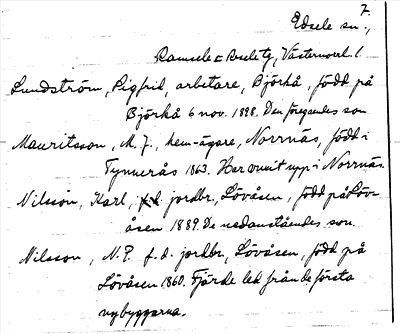 7.
Edsele sn.,
Ramsele o. Resele tg, Västernorrl. l.
Lundström, Sigfrid, arbetare, Björkå, född på
Björkå 6 nov. 1898. Den föregåendes son
Mauritsson, M. J., hem.ägare, Norrnäs, född i
Tynnerås 1863. Har vuxit upp i Norrnäs.
Nilsson, Karl, jordbr., Lövåsen, född på Löv-
åsen 1889. De nedanståendes son.
Nilsson, N. P. f.d. jordbr., Lövåsen, född på
Lövåsen 1860. Fjärde led från de första
nybyggarna.